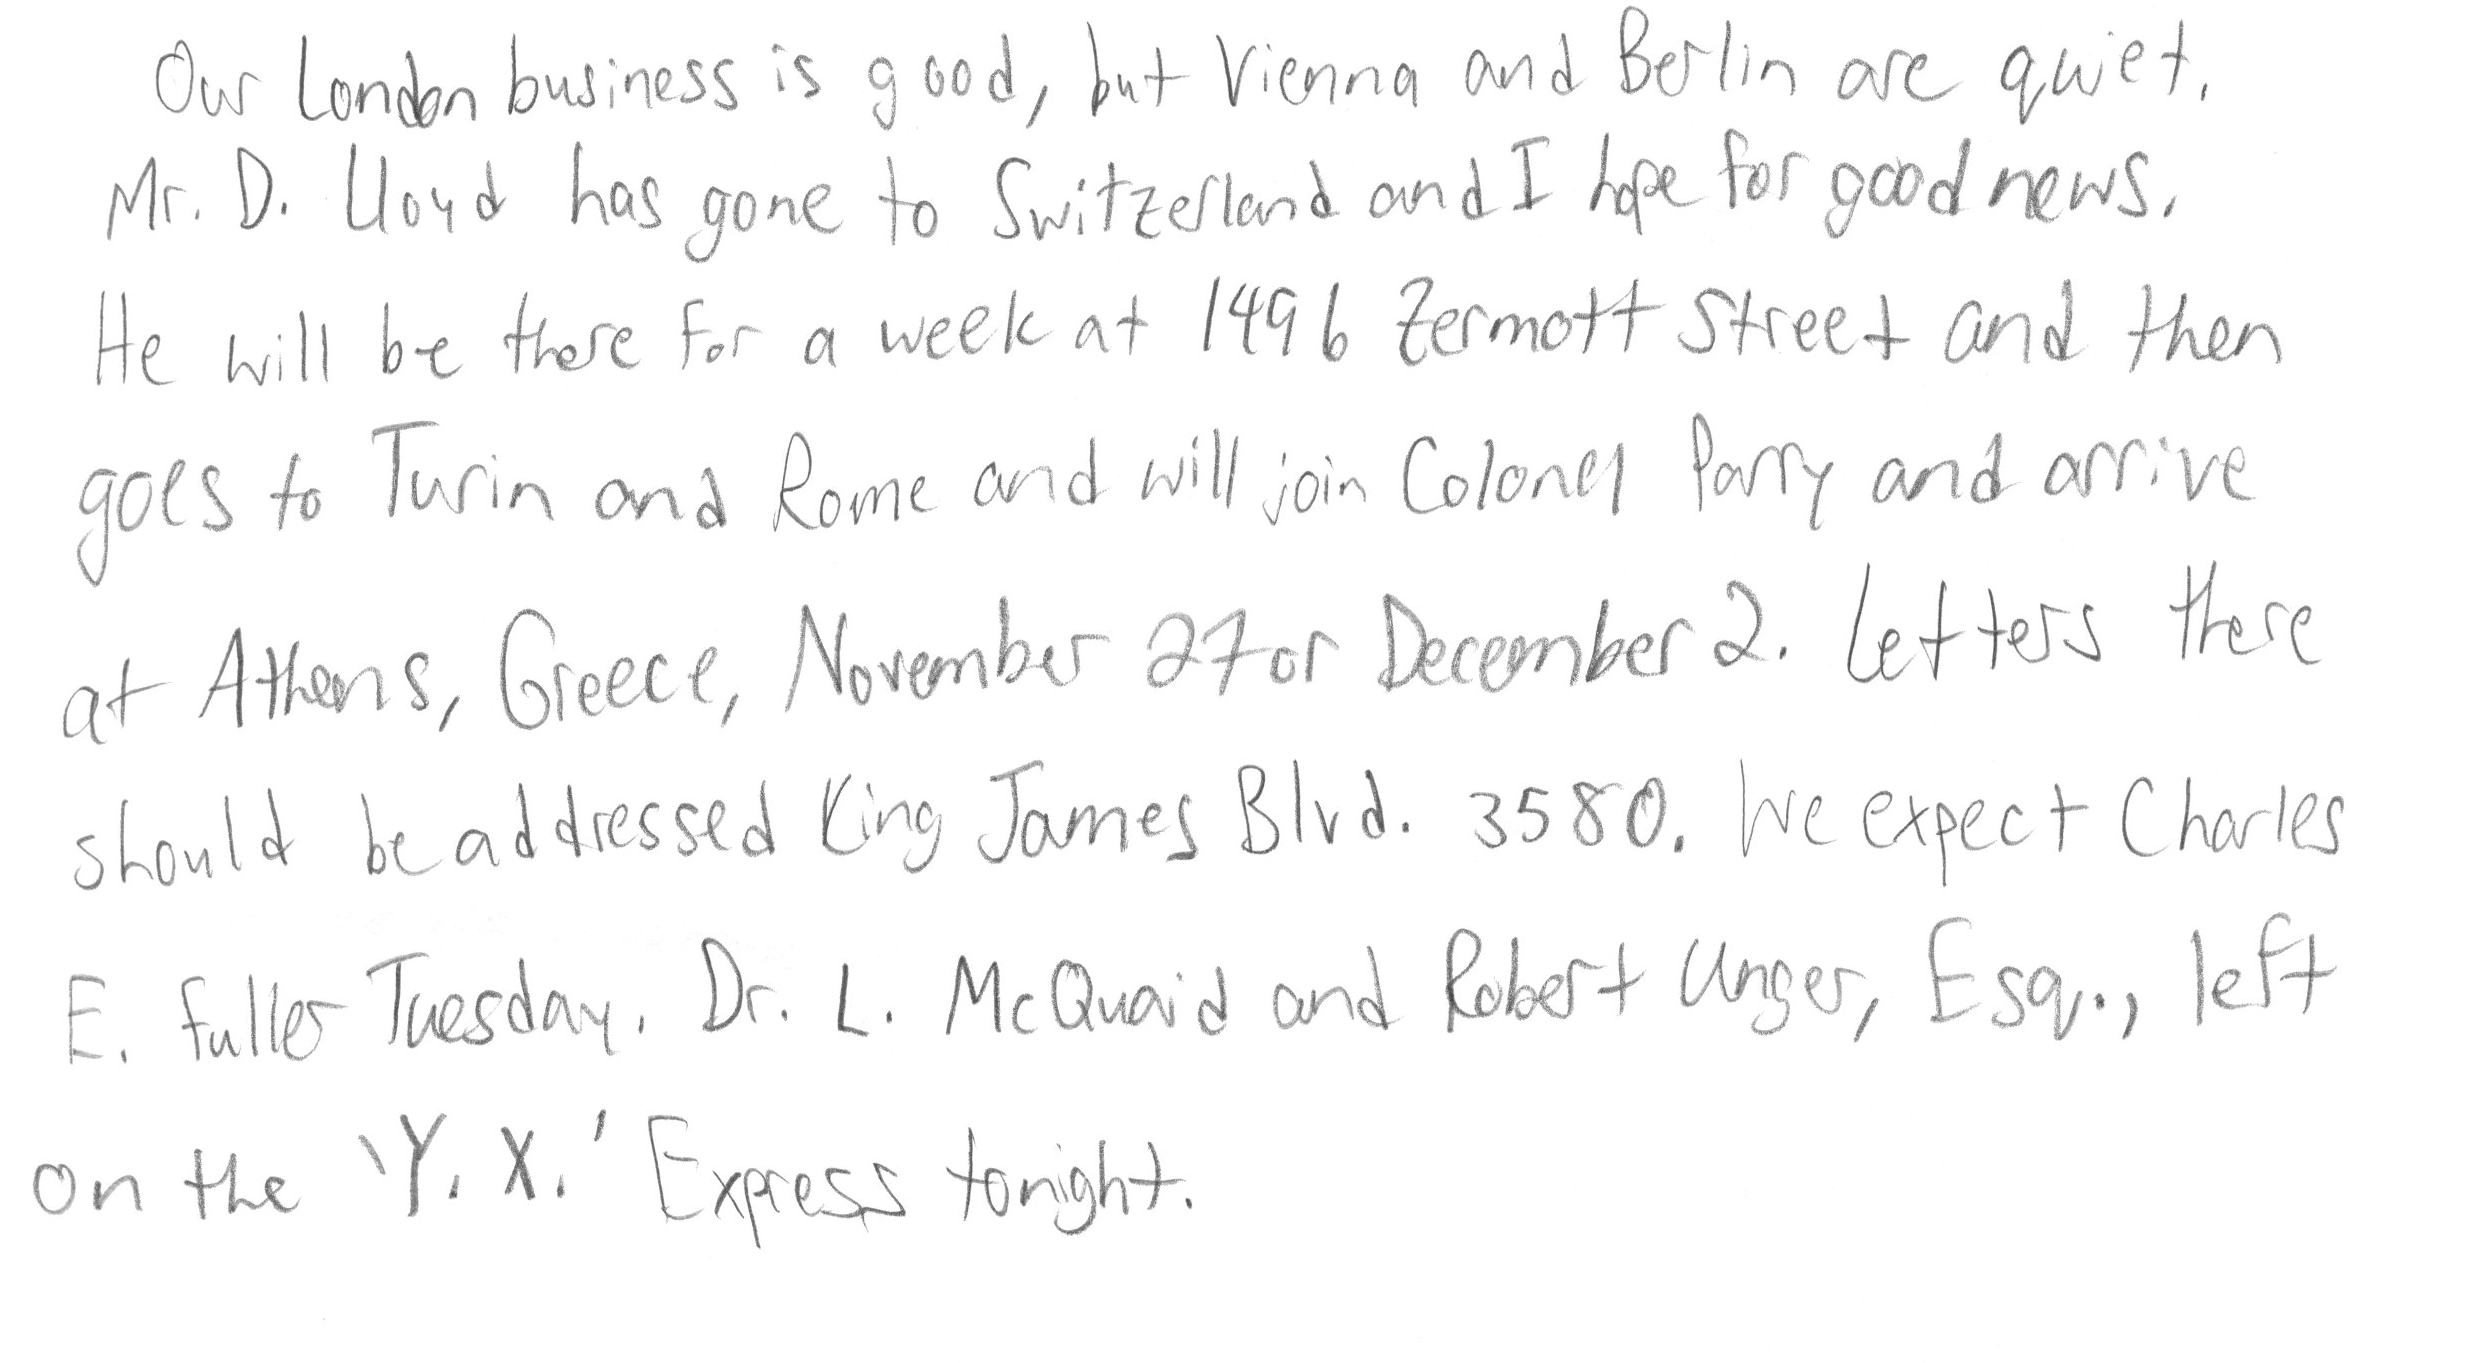 Our London business is good, but Vienna and Berlin are quiet.
Mr. D. Lloyd has gone to Switzerland and I hope for good news.
He will be there for a week at 1496 Zermott Street and then
goes to Turin and Rome and will join Colonel Parry and arrive
at Athens, Greece, November 27 or December 2. Letters there
should be addressed King James Blvd. 3580. We expect Charles
E. Fuller Tuesday. Dr. L. McQuaid and Robert Unger, Esq., left
on the 'Y. X.' Express tonight.